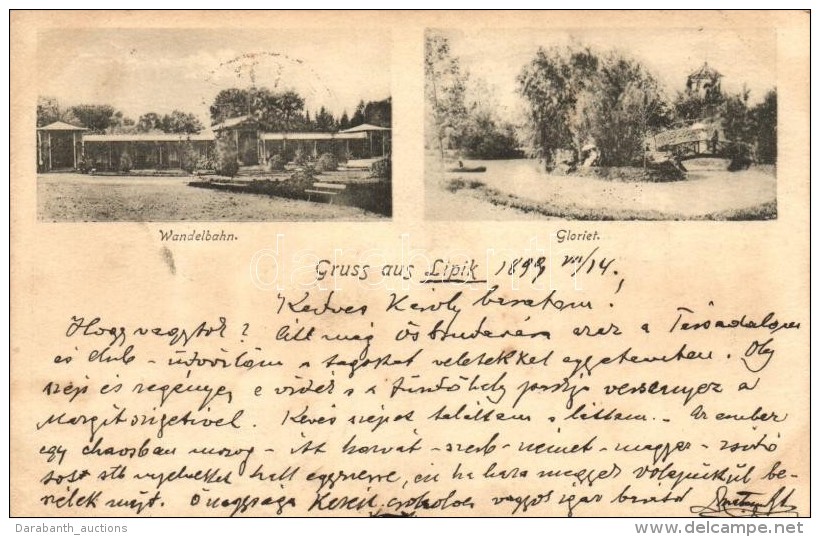 Wandelbahn.
Gloriet.
Gruss aus Lipik 1899 VII/14.
Kedves Károly barátom!
Hogy vagytok? Itt még a Társadalom
és club - üdvözlöm a tagokat veletekkel egyetemben. Oly
szép és regényes e vidék s a fürdőhely versenyez a
Margitszigetivel. Kevés szépet találtam s láttam. - Az ember
egy chaosban mozog - itt horvát - szerb - német - magyar - zsidó
stb nyelveket hall egyszerre, én ha haza megyek volapükül be-
szélek majd. Őnagysága Kezeit csókolva vagyok igaz barátod
Darabanth_auctions
http://www.delcampe.net